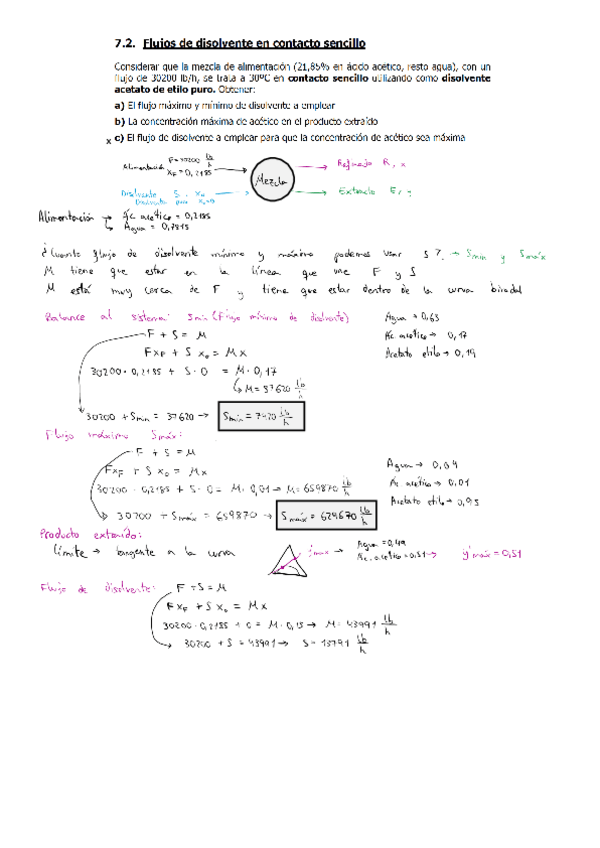 7.2. Flujos de disolvente en contacto sencillo
Considerar que la mezcla de alimentación (21,85% en ácido acético, resto agua), con un
flujo de 30200 lb/h, se trata a 30ºC en contacto sencillo utilizando como disolvente
acetato de etilo puro. Obtener:
a) El flujo máximo y mínimo de disolvente a emplear
b) La concentración máxima de acético en el producto extraído
x c) El flujo de disolvente a emplear para que la concentración de acético sea máxima
Alimentación F=30200 lb/h
XF = 0,2185
Mezcla
Refinado R, x
Disolvente S, x0
Disolvente puro x0=0
Extracto E, y
Alimentación → Ác acético = 0,2185
→ Agua = 0,7815
¿Cuánto flujo de disolvente mínimo y máximo podemos usar S? → Smín y Smáx
M tiene que estar en la línea que une F y S
M está muy cerca de F y tiene que estar dentro de la curva binodal
Balance al sistema: Smín (Flujo mínimo de disolvente)
Agua = 0,63
F + S = M
Ác acético → 0,17
F xF + S x0 = M x
Acetato etilo → 0,19
30200 · 0,2185 + S · 0 = M · 0,17
↳ M = 37620 lb/h
30200 + Smín = 37620 → Smín = 7420 lb/h
Flujo máximo Smáx:
F + S = M
Agua → 0,04
F xF + S x0 = M x
Ác acético → 0,01
30200 · 0,2185 + S · 0 = M · 0,01 → M = 659870 lb/h
Acetato etilo → 0,95
30200 + Smáx = 659870 → Smáx = 629670 lb/h
Producto extraído:
límite → tangente a la curva
Agua = 0,49
Ác. acético = 0,51 → y'máx = 0,51
Flujo de disolvente: F + S = M
F xF + S x0 = M x
30200 · 0,2185 + 0 = M · 0,15 → M = 43991 lb/h
30200 + S = 43991 → S = 13791 lb/h